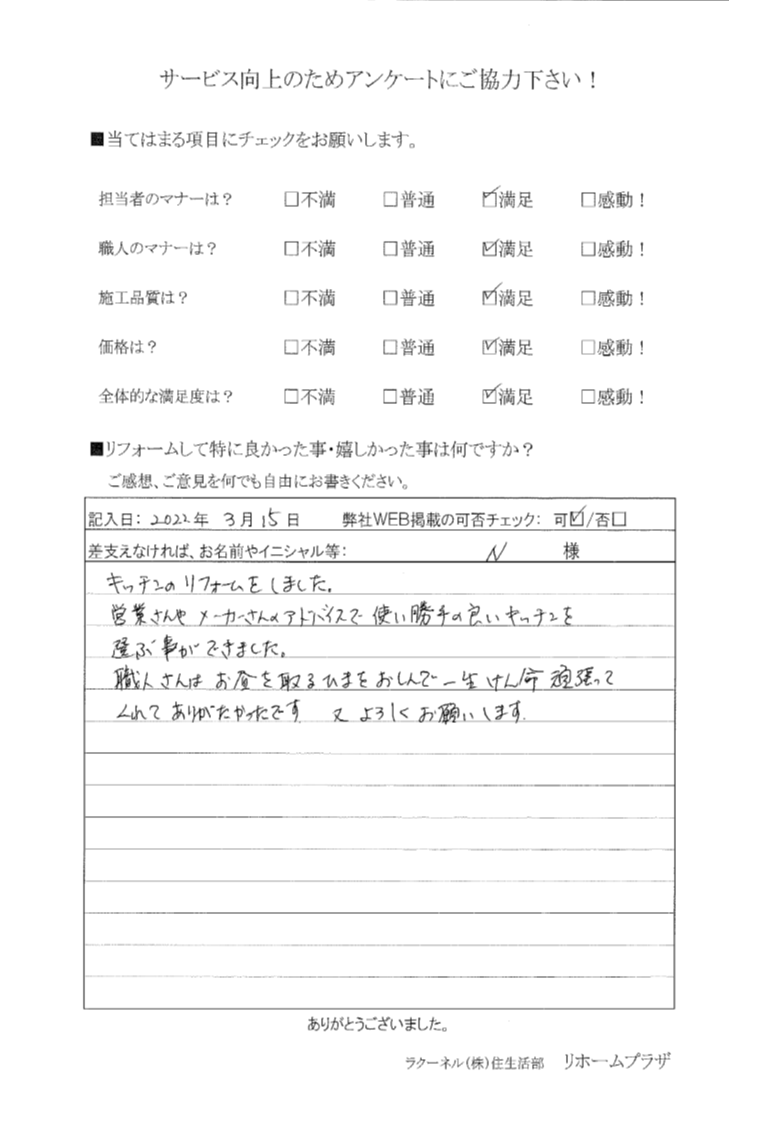 サービス向上のためアンケートにご協力下さい！
■当てはまる項目にチェックをお願いします。
担当者のマナーは？ □不満 □普通 ☑満足 □感動！
職人のマナーは？ □不満 □普通 ☑満足 □感動！
施工品質は？ □不満 □普通 ☑満足 □感動！
価格は？ □不満 □普通 ☑満足 □感動！
全体的な満足度は？ □不満 □普通 ☑満足 □感動！
■リフォームして特に良かった事・嬉しかった事は何ですか？
ご感想、ご意見を何でも自由にお書きください。
記入日：2022年 3月15日 弊社WEB掲載の可否チェック：可☑/否□
差支えなければ、お名前やイニシャル等： N 様
キッチンのリフォームをしました。
営業さんやメーカーさんのアドバイスで使い勝手の良いキッチンを
選ぶ事ができました。
職人さんはお昼を取るひまをおしんで一生けん命頑張って
くれてありがたかったです 又よろしくお願いします.
ありがとうございました。
ラクーネル（株）住生活部 リホームプラザ